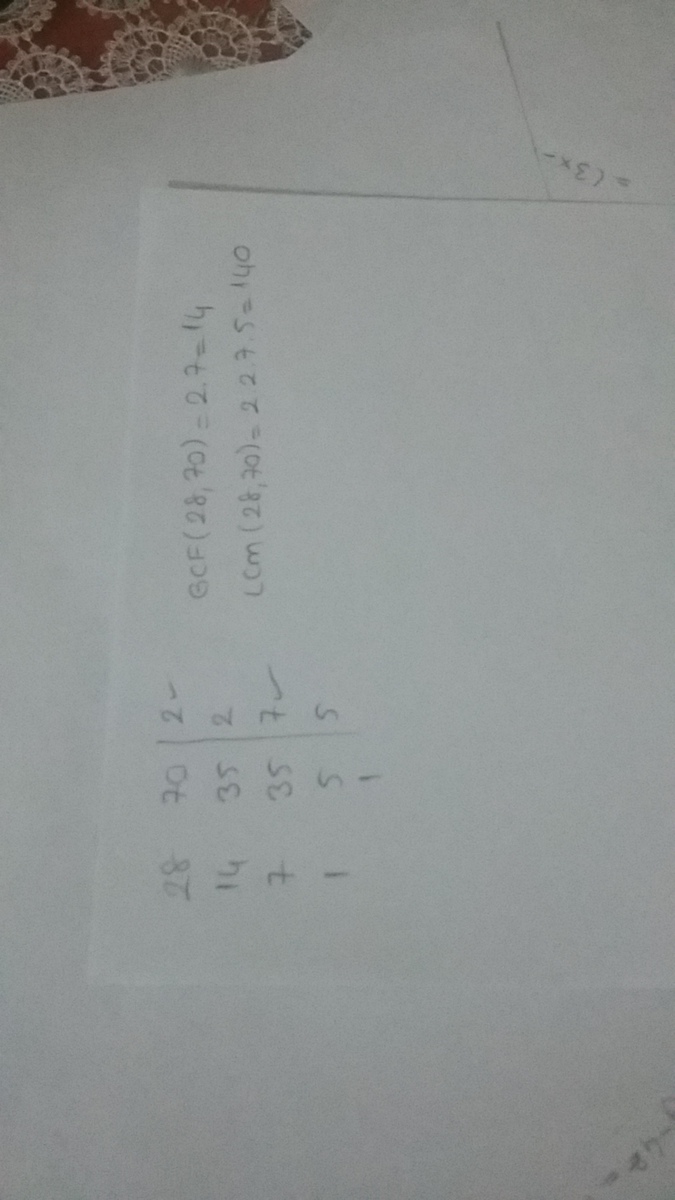 28 70 | 2 ✓
14 35 | 2
7 35 | 7 ✓
1 5 | 5
1
GCF(28,70) = 2.7 = 14
LCM(28,70) = 2 2.7.5 = 140
= (3x-